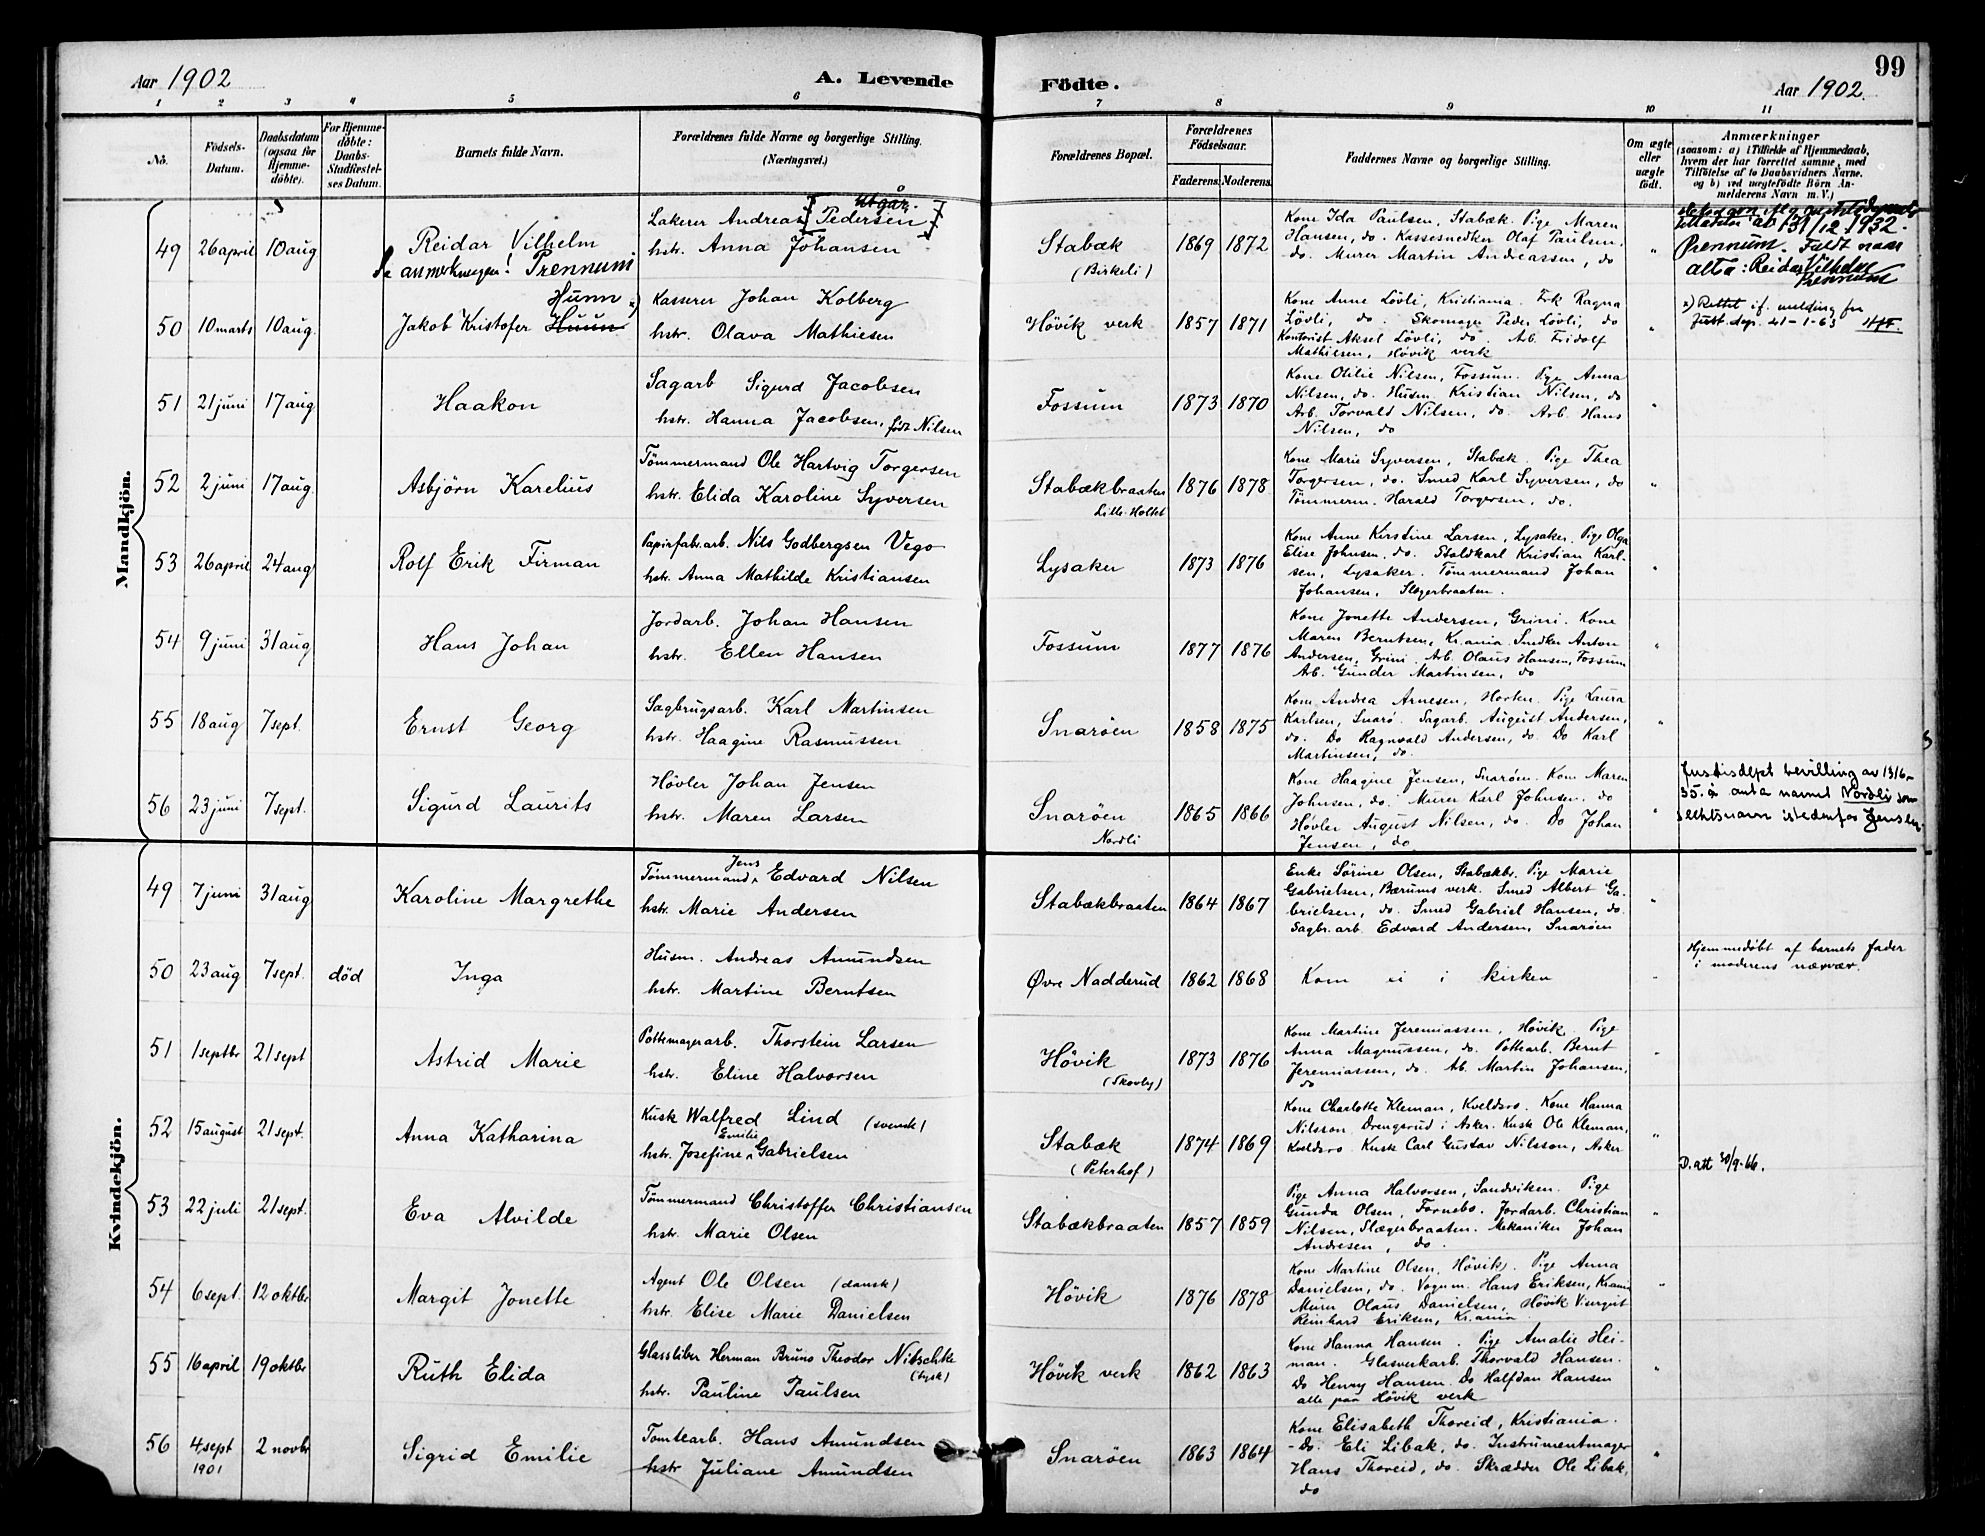 99
Aar 1902
A. Levende
Födte.
Aar 1902.
1 2 3 4 5 6 7 8 9 10 11
No.
Födsels-
Datum.
Daabsdatum
(ogsaa for
Hjemme-
döbte).
For Hjemme-
döbte:
Daabs-
Stadfæstel-
ses Datum.
Barnets fulde Navn.
Forældrenes fulde Navne og borgerlige Stilling.
(Næringsvei.)
Forældrenes Bopæl.
Forældrenes
Födselsaar.
Faderens. Moderens.
Faddernes Navne og borgerlige Stilling.
Om ægte
eller
uægte
födt.
Anmærkninger
(saasom: a) i Tilfælde af Hjemmedaab,
hvem der har forrettet samme, med
Tilföielse af to Daabsvidners Navne.
og b) ved uægtefödte Börn An-
melderens Navn m. V.)
Mandkjön.
49 26 april 10 aug
Reidar Vilhelm
Se anmerkningen! Prennum
utgår.
Lakerer Andreas [Pedersen]
hstr. Anna Johansen
Stabæk
(Birkeli)
1869 1872
Kone Ida Paulsen, Stabæk. Pige Maren
Hansen, do. Kassesnedker Olaf Paulsen,
do. Murer Martin Andreassen, do
"
31/12 1932.
Prennum. Fuldt navn
altså: Reidar Vilhelm
Prennum
50 10 marts 10 aug.
Hunn x)
Jakob Kristofer Huun
Kasserer Johan Kolberg
hstr. Olava Mathiesen
Hövik verk
1857 1871
Kone Anne Lövli, Kristiania. Frk Ragna
Lövli, do. Skomager Peder Lövli, do
Kontorist Aksel Lövli, do. Arb. Fridolf
Mathiesen, Hövik verk
"
x) Rettet if. melding fra
Just. dep. 21-1-63
51 21 juni 17 aug
Haakon
Sagarb Sigurd Jacobsen
hstr. Hanna Jacobsen, født Nilsen
Fossum
1873 1870
Kone Otilie Nilsen, Fossum. Pige Anna
Nilsen, do. Husm. Kristian Nilsen, do
Arb. Torvald Nilsen, do. Arb. Hans
Nilsen, do
"
52 2 juni 17 aug.
Asbjörn Karelius
Tömmermand Ole Hartvig Torgersen
hstr. Elida Karoline Syversen
Stabækbraaten
Lille-Holtet
1876 1878
Kone Marie Syversen, Stabæk. Pige Thea
Torgersen, do. Smed Karl Syversen, do
Tömmerm. Harald Torgersen, do.
"
53 26 april 24 aug
Rolf Erik Firman
Papirfabr.arb. Nils Godbergsen Vego
hstr. Anna Mathilde Kristiansen
Lysaker
1873 1876
Kone Anne Kirstine Larsen, Lysaker. Pige Olga
Elise Johnsen, do. Staldkarl Kristian Karl-
sen, Lysaker. Tömmermand Johan
Johansen, Slægerbraaten.
"
54 9 juni 31 aug
Hans Johan
Jordarb. Johan Hansen
hstr. Ellen Hansen
Fossum
1877 1876
Kone Jonette Andersen, Grini. Kone
Maren Berntsen, Kr.ania. Snedker Anton
Andersen, Grini. Arb. Olaus Hansen, Fossum
Arb. Gunder Martinsen, do
"
55 18 aug 7 sept.
Ernst Georg
Sagbrugsarb. Karl Martinsen
hstr. Haagine Rasmussen
Snaröen
1858 1875
Kone Andrea Arnesen, Horten. Pige Laura
Karlsen, Snarö. Sagarb. August Andersen,
do. Do Ragnvald Andersen, do. Do Karl
Martinsen, do.
"
56 23 juni 7 sept.
Sigurd Laurits
Hövler Johan Jensen
hstr. Maren Larsen
Snaröen
Nordli
1865 1866
Kone Haagine Jensen, Snaröen. Kone Maren
Johnsen, do. Murer Karl Johnsen, do
Hövler August Nilsen, do. Do Johan
Jensen, do
"
Justisdept bevilling av 13/6-
35. å anta navnet Nordli som
slektsnavn istedenfor Jensen.
Kvindekjön.
49 7 juni 31 aug
Karoline Margrethe
Jens
Tömmermand Edvard Nilsen
hstr. Marie Andersen
Stabækbraaten
1864 1867
Enke Sörine Olsen, Stabækbr. Pige Marie
Gabrielsen, Bærums verk. Smed Albert Ga-
brielsen, do. Smed Gabriel Hansen, do.
Sagbr. arb. Edvard Andersen, Snaröen
"
50 23 aug 7 sept. död
Inga
Husm. Andreas Amundsen
hstr. Martine Berntsen
Övre Nadderud
1862 1868
Kom ei i kirken
"
Hjemmedöbt af barnets fader
i moderens nærvær.
51 1 septbr 21 sept
Astrid Marie
Pottemagerarb. Thorstein Larsen
hstr. Eline Halvorsen
Hövik
(Skovly)
1873 1876
Kone Martine Jeremiassen, Hövik. Pige
Anna Magnussen, do. Pottearb. Bernt
Jeremiassen, do. Ab. Martin Johansen,
do
"
52 15 august 21 sept.
Anna Katharina
Kusk Walfred Lind (svensk)
Emilie
hstr. Josefine Gabrielsen
Stabæk
(Peterhof)
1874 1869
Kone Charlotte Kleman, Kveldsro. Kone Hanna
Nilsson, Drengsrud i Asker. Kusk Ole Kleman,
Kveldsro. Kusk Carl Gustav Nilsson, Asker
"
D.att 30/9-66.
53 22 juli 21 sept.
Eva Alvilde
Tömmermand Christoffer Christiansen
hstr. Marie Olsen
Stabækbraaten
1857 1859
Pige Anna Halvorsen, Sandviken. Pige
Gunda Olsen, Fornebo. Jordarb. Christian
Nilsen, Slægerbraaten. Mekaniker Johan
Andresen, do.
"
54 6 sept. 12 oktbr
Margit Jonette
Agent Ole Olsen (dansk)
hstr. Elise Marie Danielsen
Hövik
1876 1878
Kone Martine Olsen, Hövik. Pige Anna
Danielsen, do. Vognm. Hans Eriksen, Kr.ania
Murer Olaus Danielsen, Hövik Visergut
Reinhard Eriksen, Kr.ania
"
55 16 april 19 oktbr
Ruth Elida
Glassliber Herman Bruno Theodor Nitschke
(tysk)
hstr. Pauline Paulsen
Hövik verk
1862 1863
Kone Hanna Hansen. Pige Amalie Hei-
man. Glasverkarb. Thorvald Hansen.
Do Henry Hansen. Do Halfdan Hansen
alle paa Hövik verk
"
56 4 sept 2 novbr
1901
Sigrid Emilie
Tomtearb. Hans Amundsen
hstr Juliane Amundsen
Snaröen
1863 1864
Kone Elisabeth Thoreid, Kristiania.
- Do. Eli Libak, do. Instrumentmager
Hans Thoreid, do. Skrædder Ole Libak,
do
"